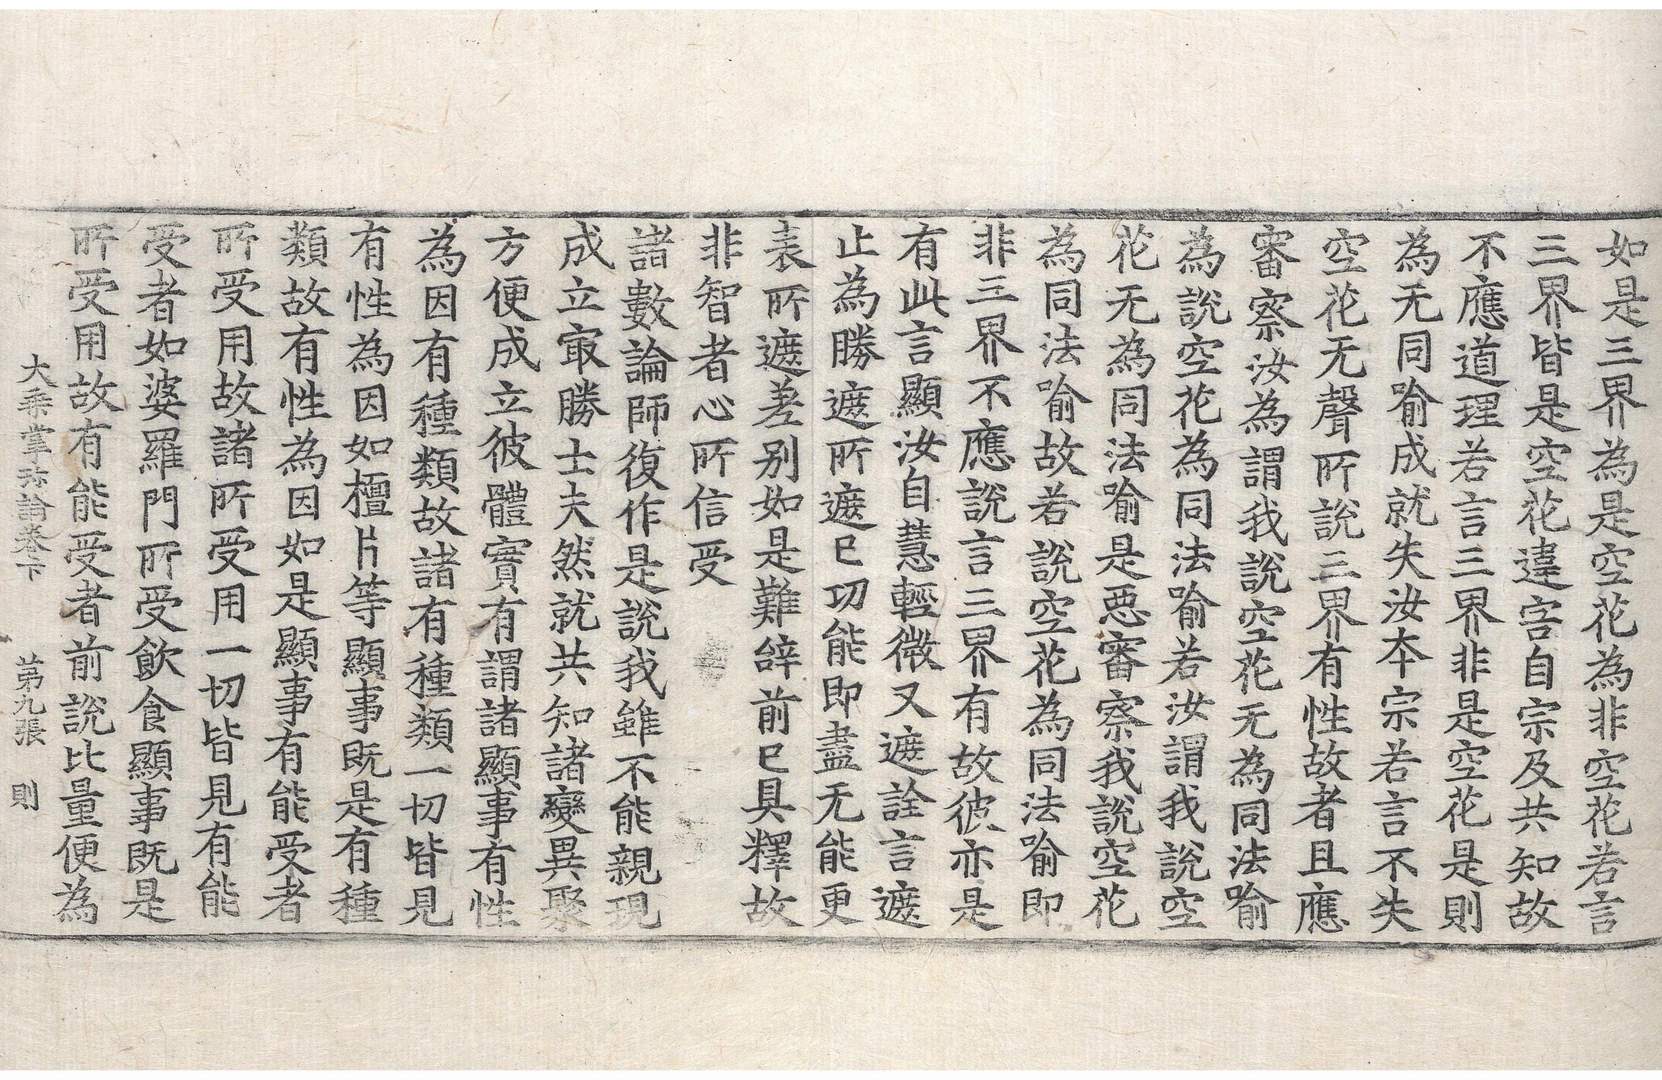 如是三界為是空花為非空花若言
三界皆是空花違害自宗及共知故
不應道理若言三界非是空花是則
為无同喻成就失汝本宗若言不失
空花无聲所說三界有性故者且應
審察汝為謂我說空花无為同法喻
為說空花為同法喻若汝謂我說空
花无為同法喻是惡審察我說空花
為同法喻故若說空花為同法喻即
非三界不應說言三界有故彼亦是
有此言顯汝自慧輕微又遮詮言遮
止為勝遮所遮已功能即盡无能更
表所遮差別如是難辝前已具釋故
非智者心所信受
諸數論師復作是說我雖不能親現
成立冣勝士夫然就共知諸變異聚
方便成立彼體實有謂諸顯事有性
為因有種類故諸有種類一切皆見
有性為因如檀片等顯事既是有種
類故有性為因如是顯事有能受者
所受用故諸所受用一切皆見有能
受者如婆羅門所受飲食顯事既是
所受用故有能受者前說比量便為
大乘掌珎論卷下 苐九張 則